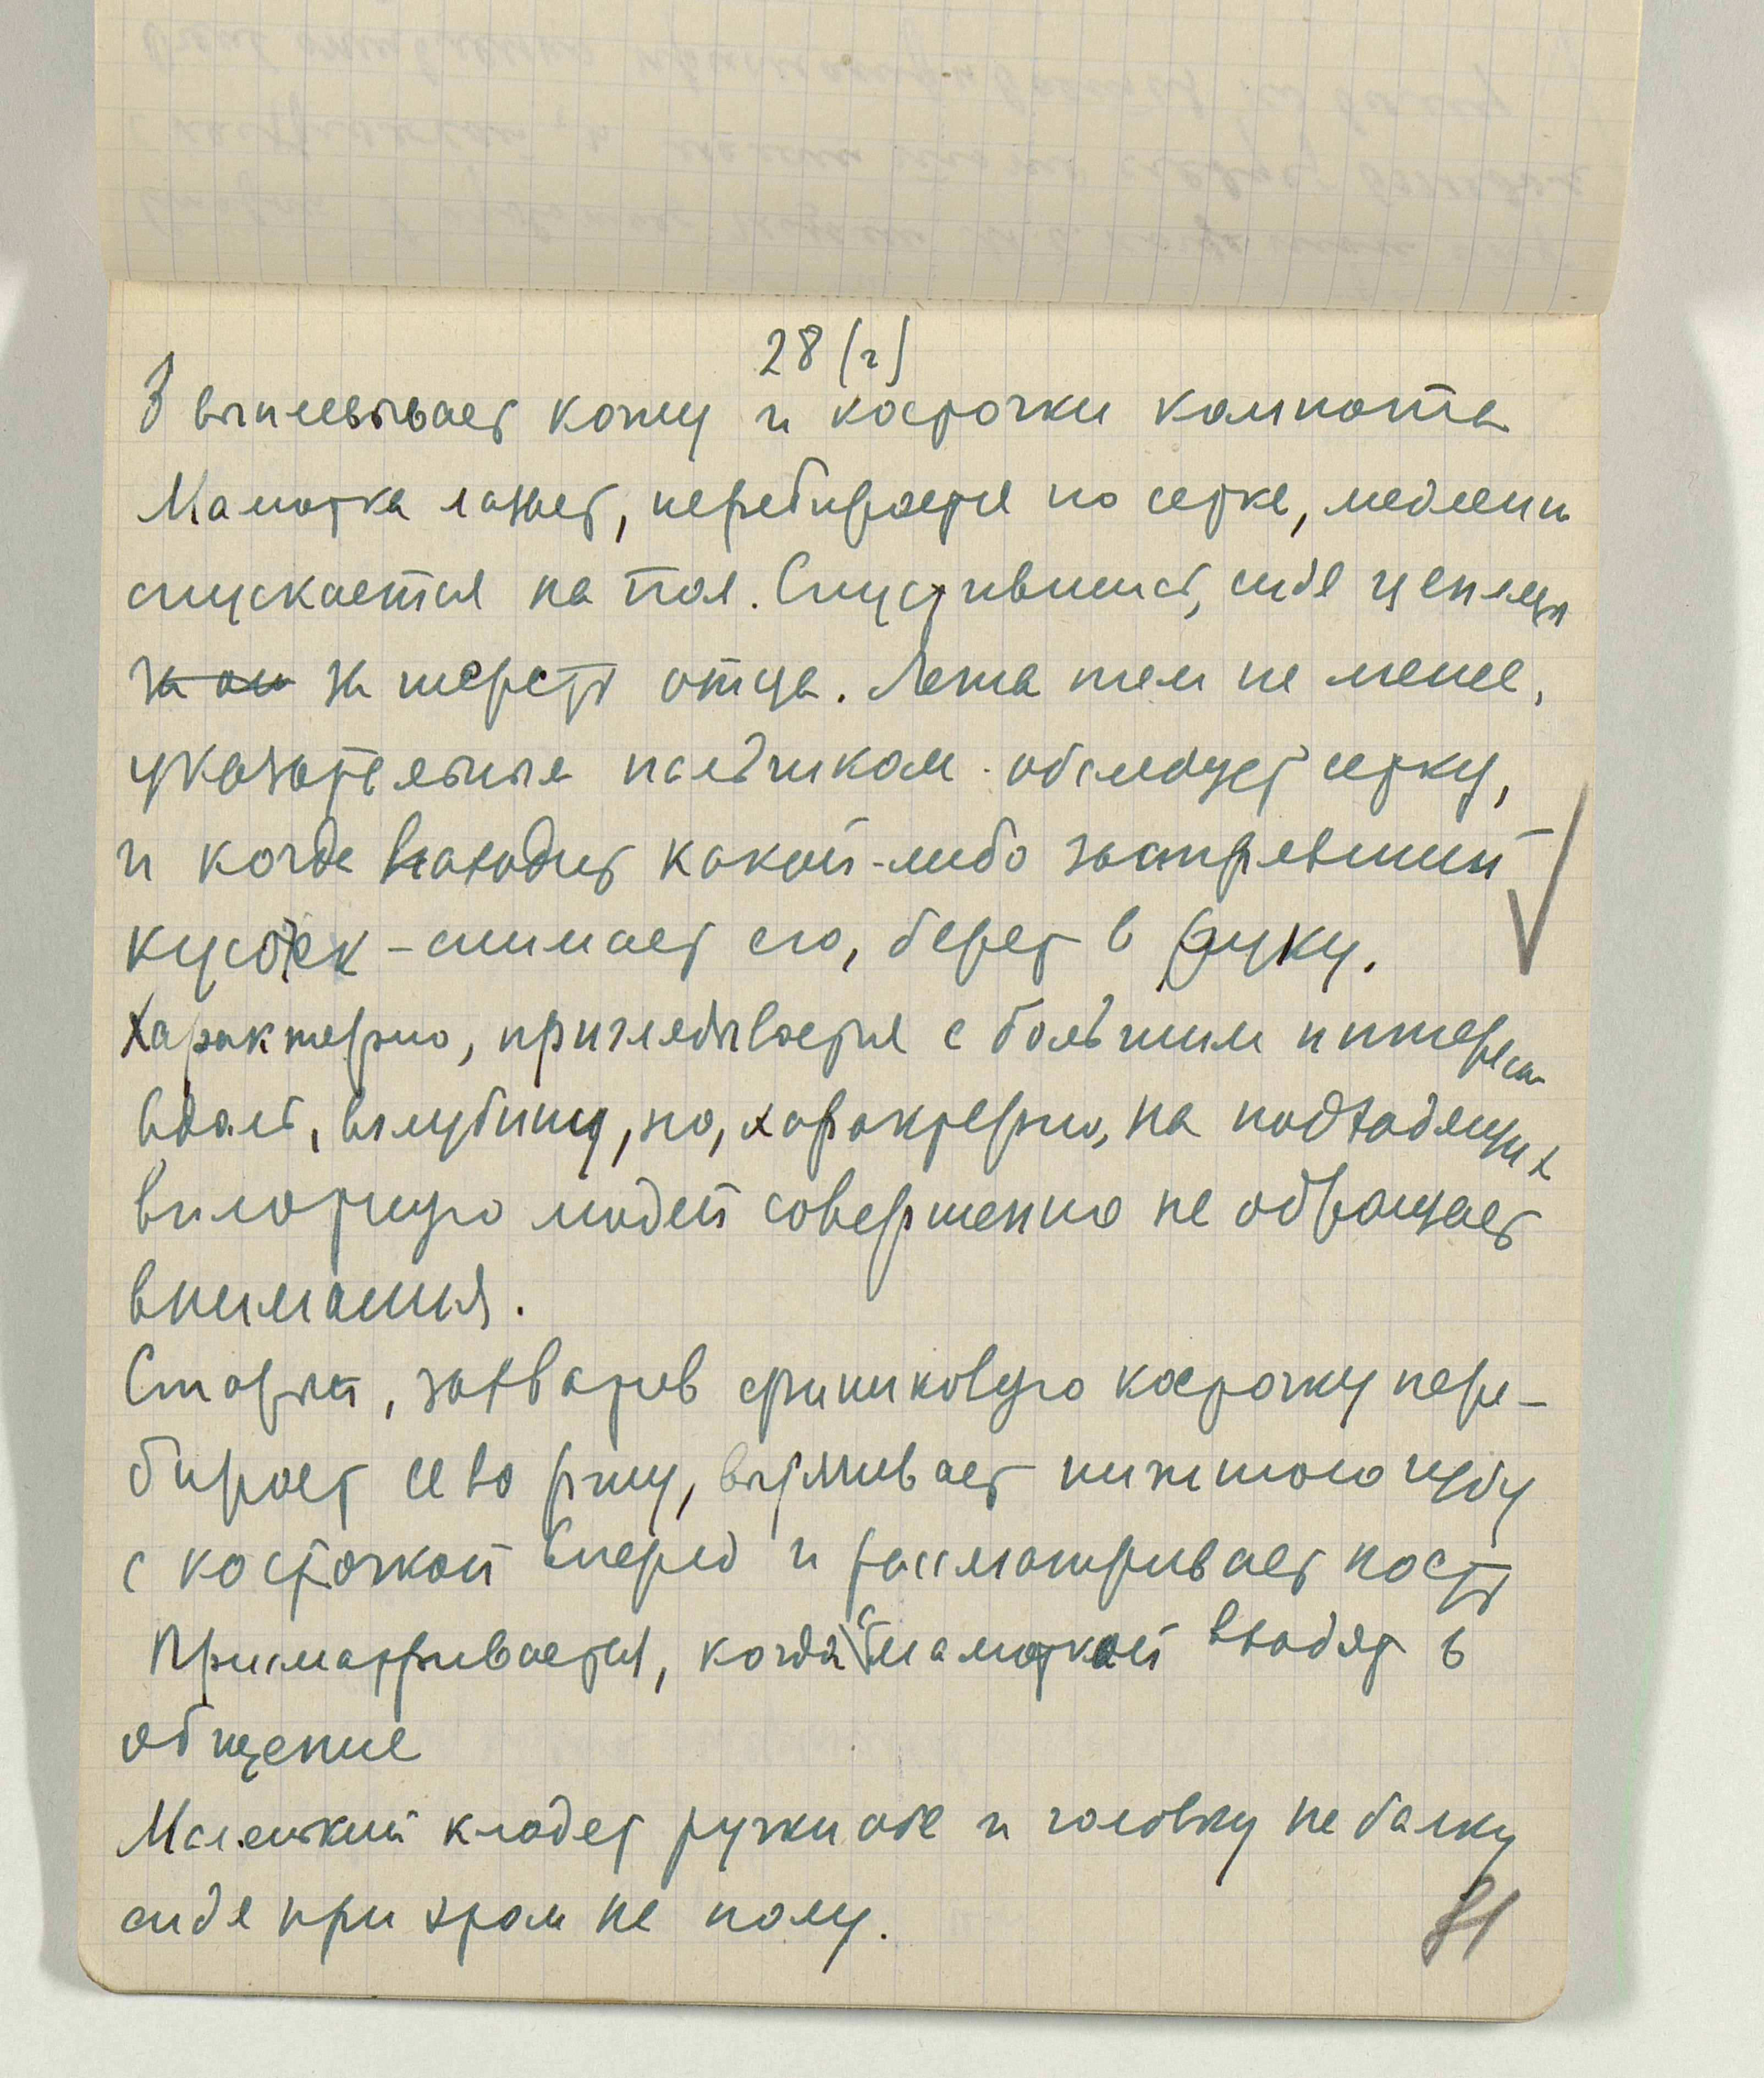 28 (г)
З выплевывает кожу и косточки компота
Мамотка лазает, перебирается по сетке, медленно
спускается на пол. Спустившись, сидя цепляя
за шерсть отца. Лежа тем не менее,
указательным пальчиком обследует сетку,
и когда находит какой-либо застрявший
кусочек – снимает его, берет в руку.
Характерно, приглядывается с большим интересом
вдаль, вглубину, но, характерно, на подходящих
вплотную людей совершенно не обращает
внимания.
Старый, захватив финиковую косточку пере-
бирает ее во рту, вытягивает нижнюю губу
с косточкой вперед и рассматривает кость
Присматривается, когда с мамоткой входят в
общение
Маленький кладет ручки обе и головку на балку
сидя при этом на полу.